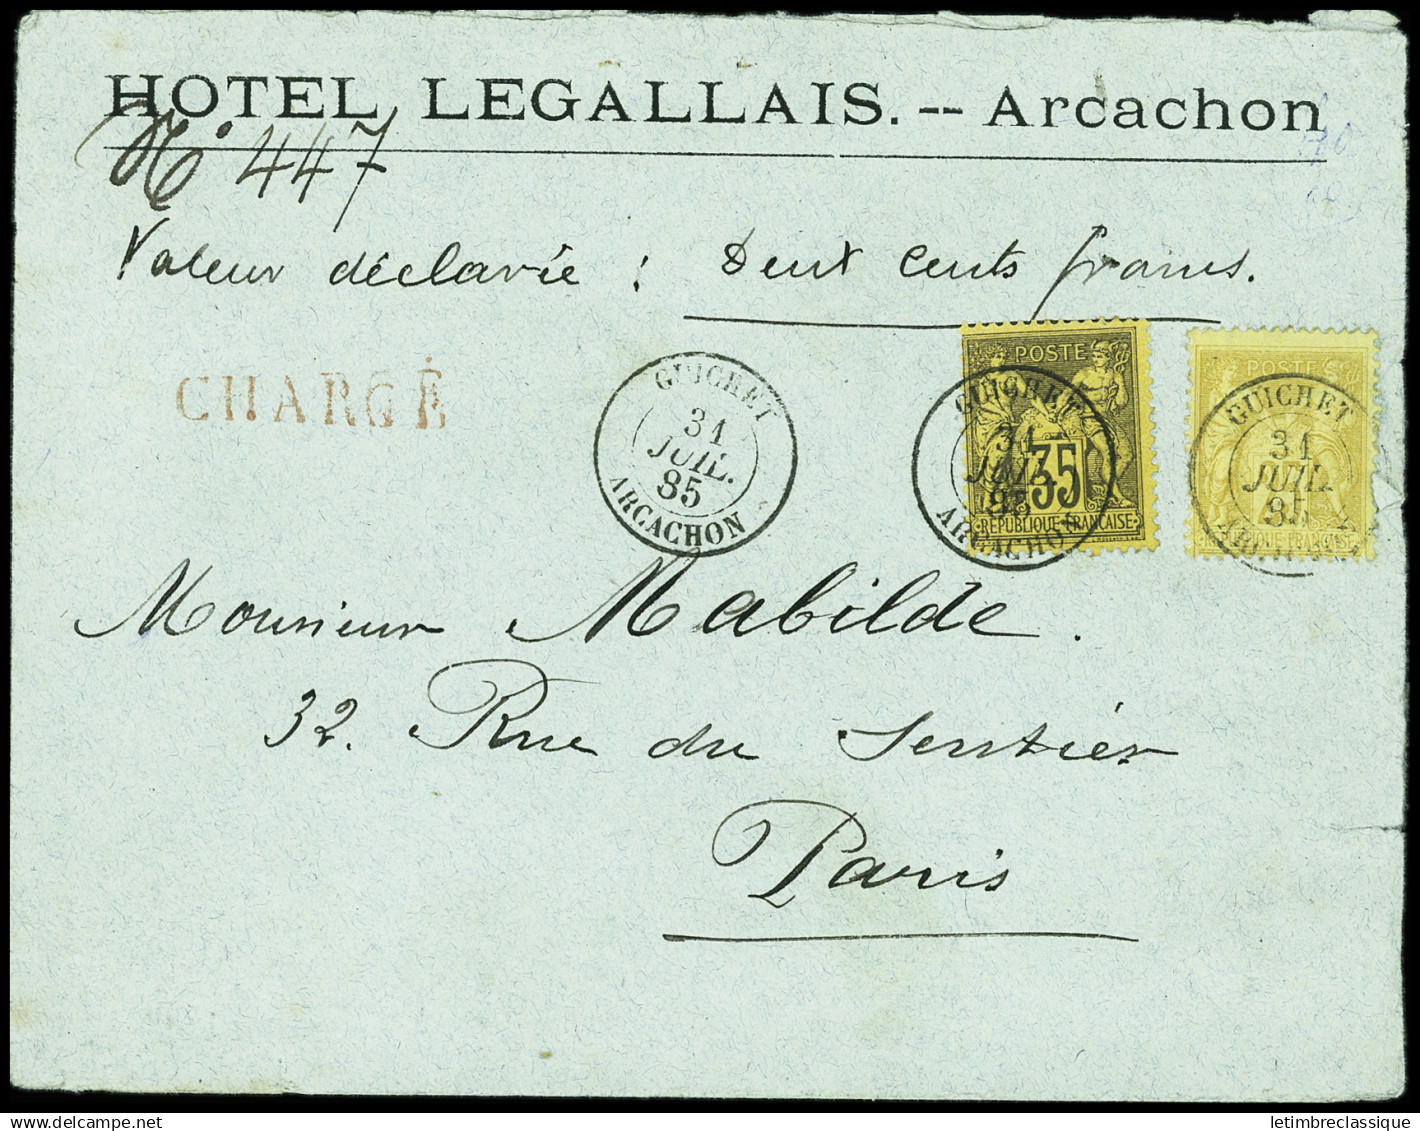 HOTEL LEGALLAIS. -- Arcachon
N° 447
Valeur déclarée : Deux cents francs.
CHARGÉ
GUICHET
31
JUIL.
85
ARCACHON
POSTE
35
REPUBLIQUE FRANÇAISE
GUICHET
31
JUIL.
85
ARCACHON
POSTE
GUICHET
31
JUIL.
85
Monsieur Mabilde.
32. Rue du Sentier
Paris
delcampe.net
letimbreclassique